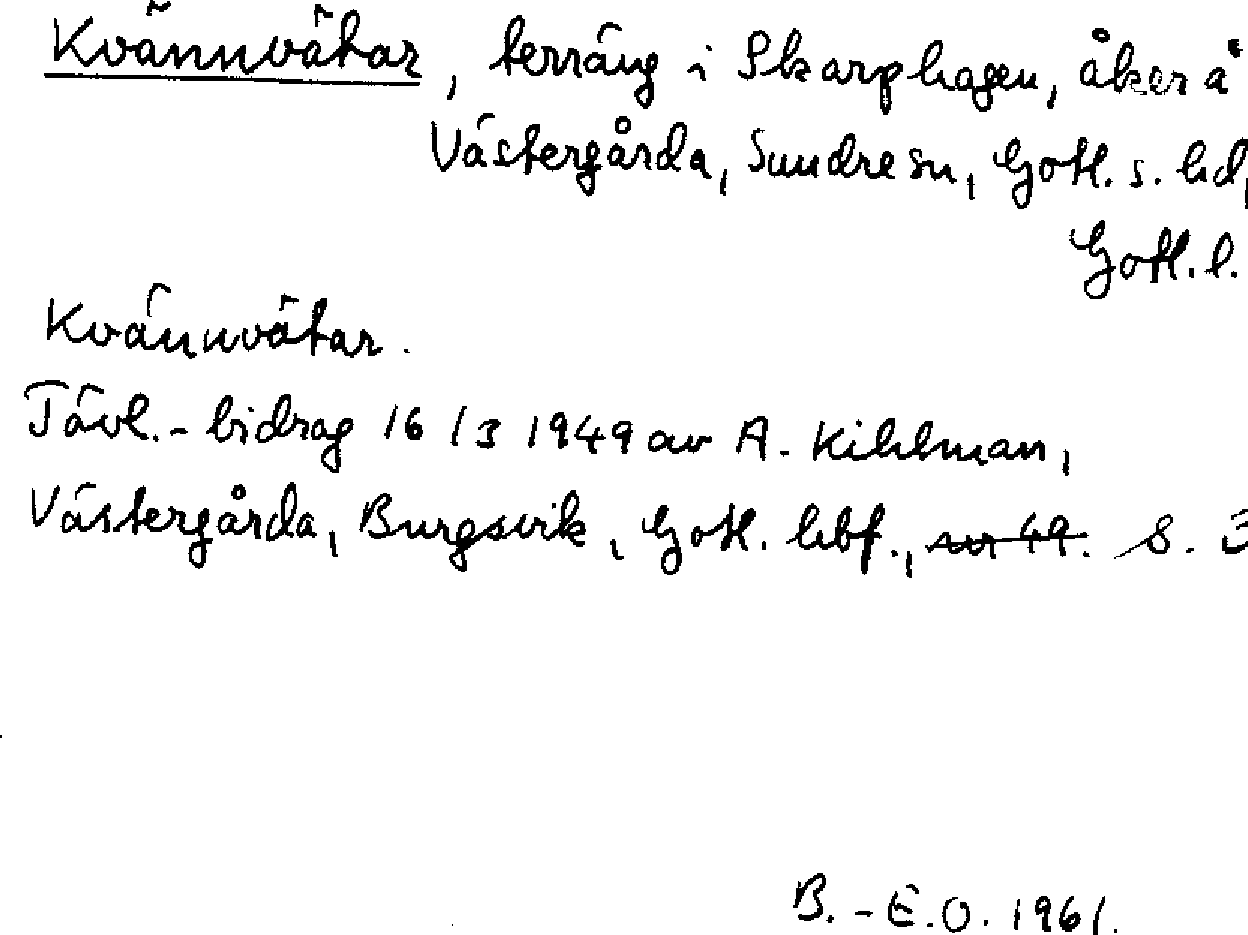 Kvännvätar, terräng i Skarphagen, åker å
Västergårda, Sundre sn, Gotl. s. hd,
Gotl. l.
Kvännvätar.
Tävl.-bidrag 16/3 1949 av A. Kihlman,
Västergårda, Burgsvik, Gotl. hbf., S. 3
B.-E.O. 1961.